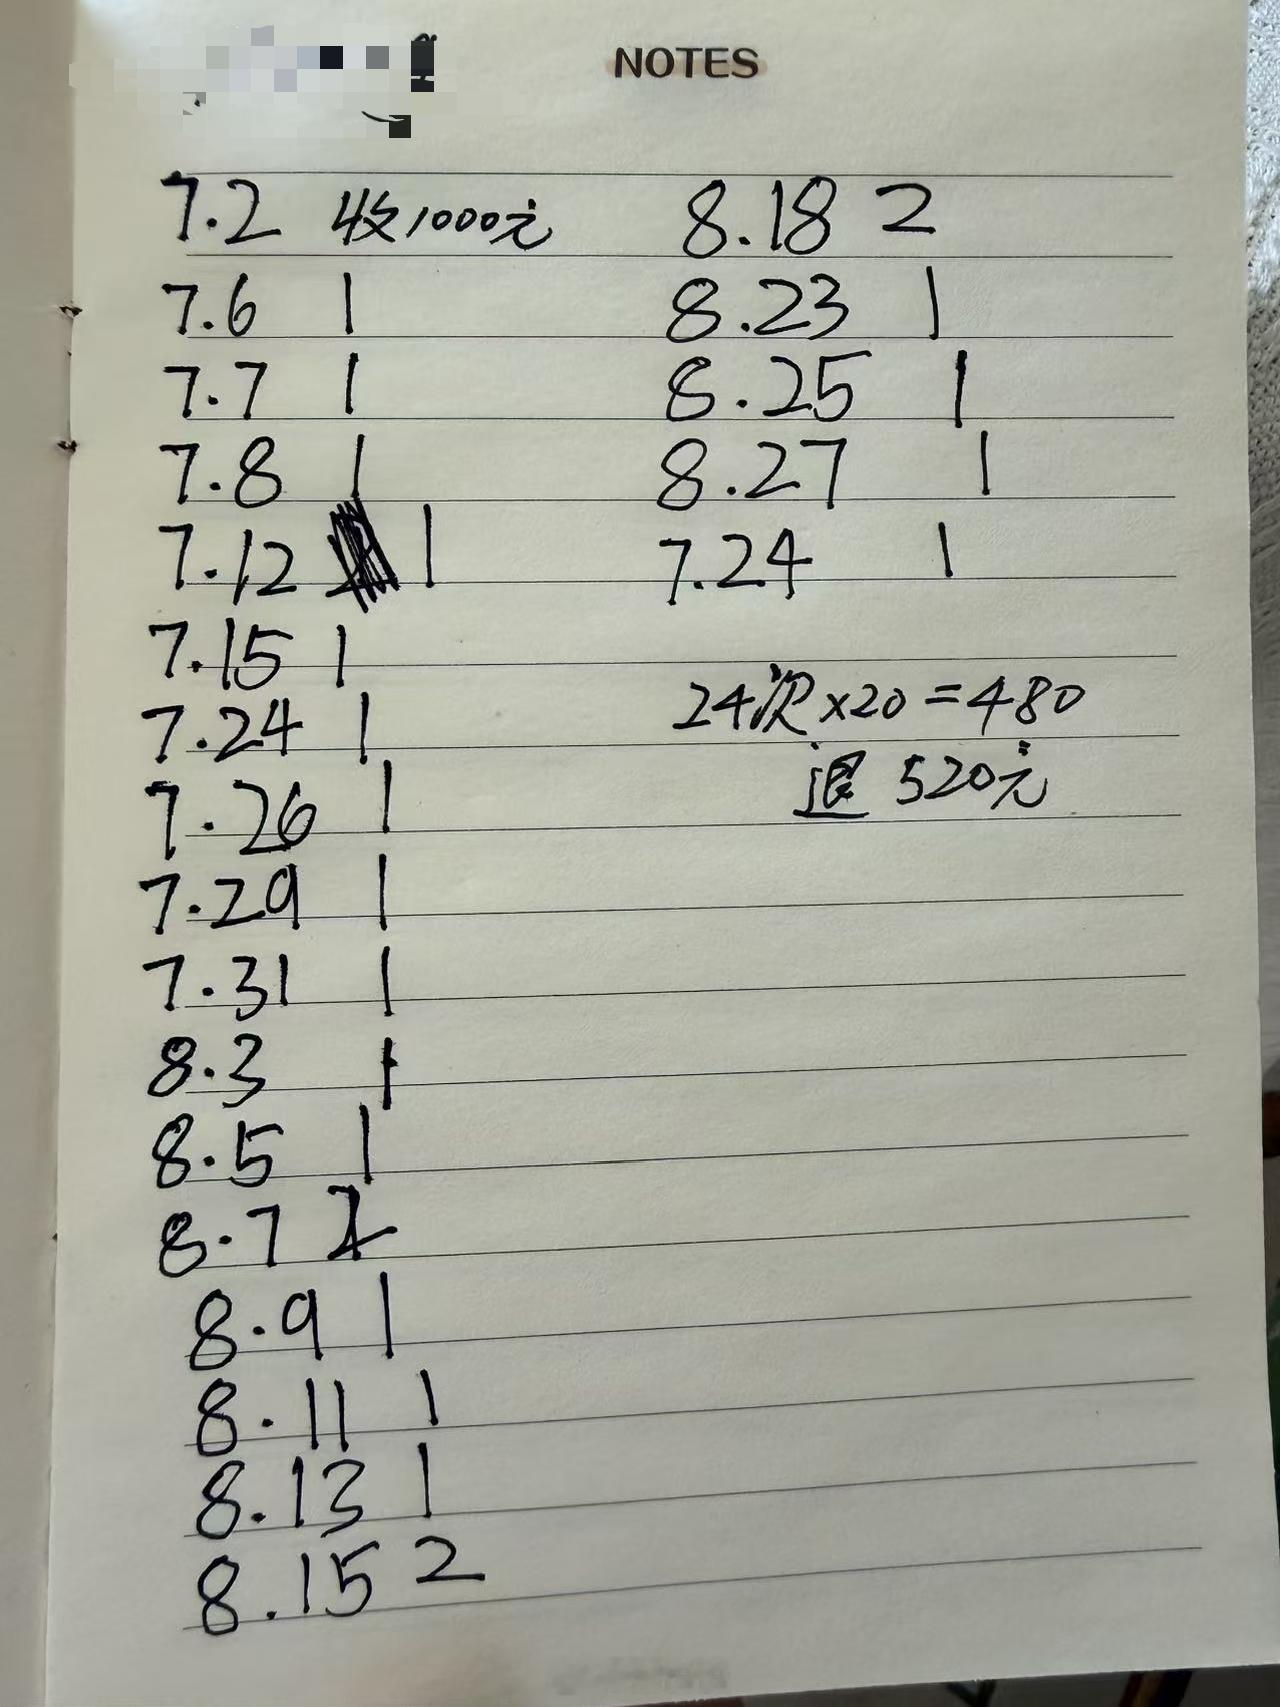 NOTES
7.2 收1000元
7.6 1
7.7 1
7.8 1
7.12 1
7.15 1
7.24 1
7.26 1
7.29 1
7.31 1
8.3 1
8.5 1
8.7 2
8.9 1
8.11 1
8.13 1
8.15 2
8.18 2
8.23 1
8.25 1
8.27 1
7.24 1
24次×20=480
退 520元